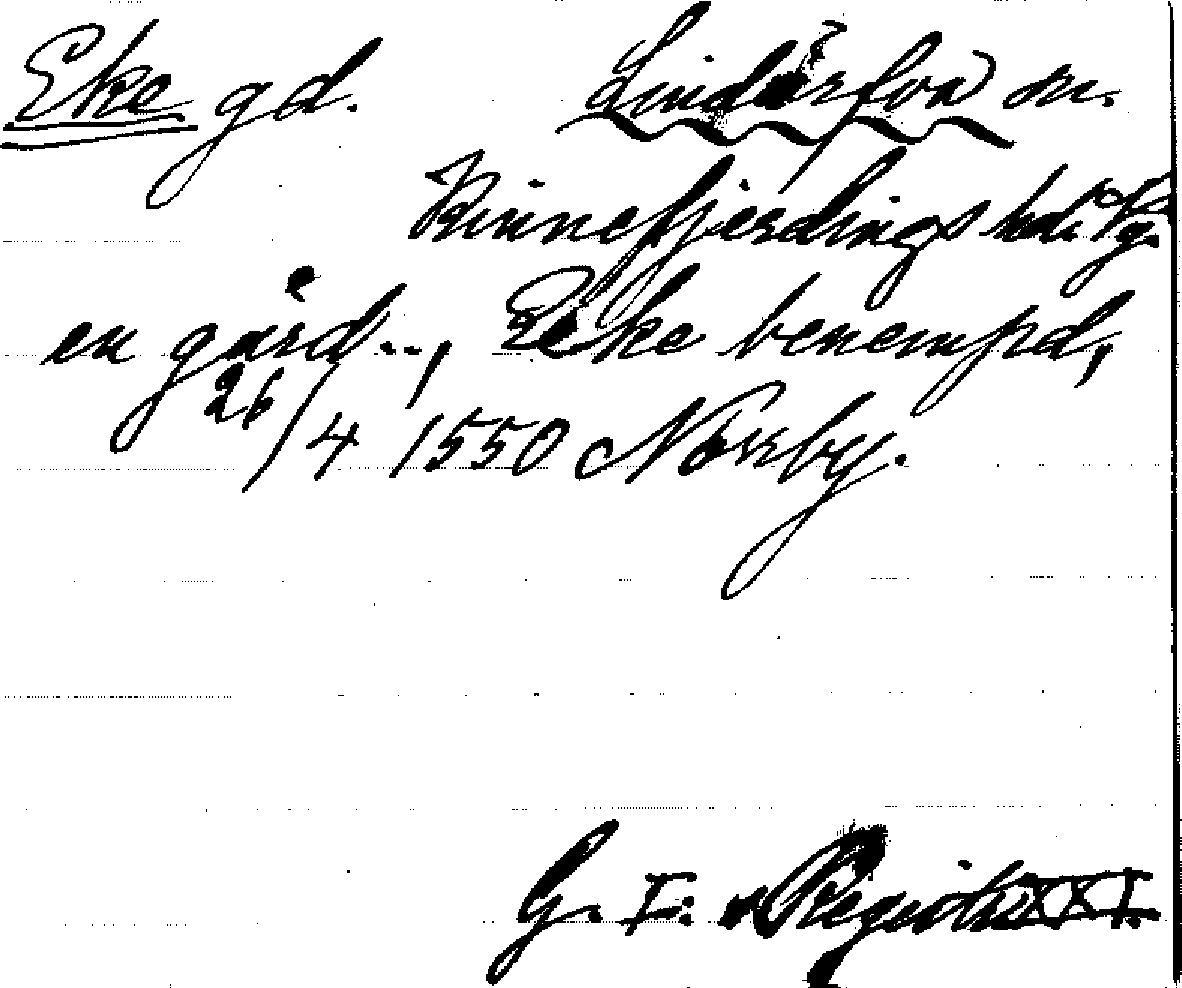 Eke gd. Lindärfva sn.
Kinnefjerdings hd. Vg.
en gård.., Eeke benempd,
26/4 1550 Norrby.
G. I: s Registr. XXI.